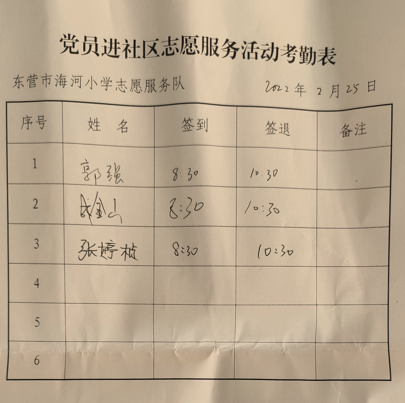 党员进社区志愿服务活动考勤表
东营市海河小学志愿服务队 2022年2月25日
序号 姓名 签到 签退 备注
1 郭强 8:30 10:30
2 金山 8:30 10:30
3 张婷桢 8:30 10:30
4
5
6